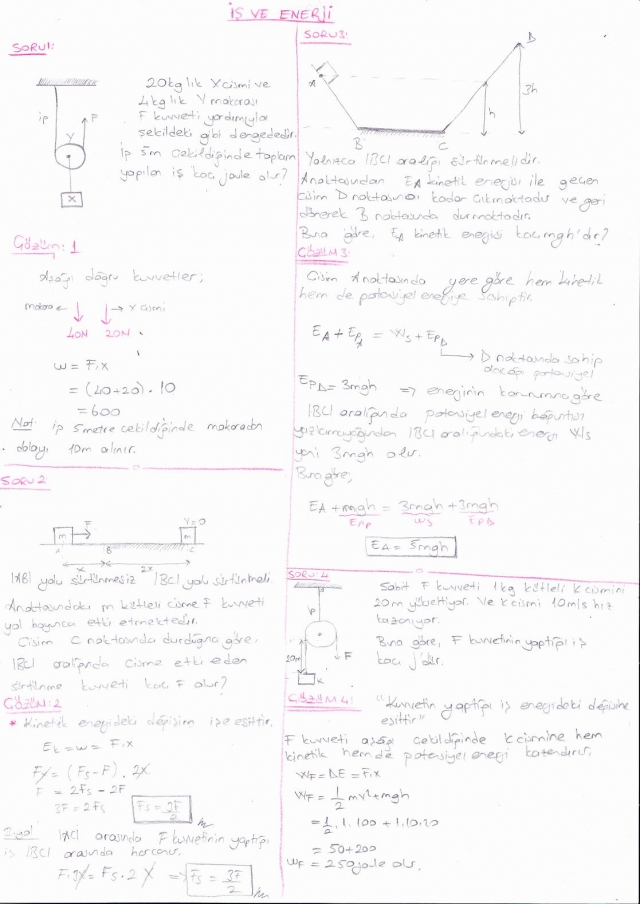 İŞ VE ENERJİ
SORU1:
20kg lık X cismi ve
4kg lık Y makarası
F kuvveti yardımıyla
şekildeki gibi dengededir.
İp 5m çekildiğinde toplam
yapılan iş kaç joule olur?
ip
F
Y
X
Çözüm: 1
Aşağı doğru kuvvetler;
makara ← → X cismi
40N 20N
W = F.x
= (40+20) . 10
= 600
Not: ip 5 metre çekildiğinde makaradan
dolayı 10m alınır.
SORU 2
m F V=0 m
A B C
x 2x
|AB| yolu sürtünmesiz |BC| yolu sürtünmeli.
A noktasındaki m kütleli cisme F kuvveti
yol boyunca etki etmektedir.
Cisim C noktasında durduğuna göre,
|BC| aralığında cisme etki eden
sürtünme kuvveti kaç F olur?
ÇÖZÜM:2
* Kinetik enerjideki değişim işe eşittir.
Ek = W = F.x
Fx = (Fs-F) . 2x
F = 2Fs - 2F
3F = 2Fs Fs = 3F/2
2.yol |AC| arasında F kuvvetinin yaptığı
iş |BC| arasında harcanır.
F.3x = Fs . 2x => Fs = 3F/2
SORU3:
A
B
C
D
h
3h
Yalnızca |BC| aralığı sürtünmelidir.
A noktasından EA kinetik enerjisi ile geçen
cisim D noktasına kadar çıkmaktadır ve geri
dönerek B noktasında durmaktadır.
Buna göre, EA kinetik enerjisi kaç mgh'dır?
ÇÖZÜM3:
Cisim A noktasında yere göre hem kinetik
hem de potansiyel enerjiye sahiptir.
EA + EpA = Ws + EpD
→ D noktasında sahip
olacağı potansiyel
EPD = 3mgh => enerjinin korunumuna göre
|BC| aralığında potansiyel enerji
|BC| aralığındaki enerji Ws
yani 3mgh olur.
Buna göre;
EA + mgh = 3mgh + 3mgh
EAp Ws EPD
EA = 5mgh
SORU:4
ip
10m
F
K
Sabit F kuvveti 1kg kütleli K cismini
20m yükseltiyor. Ve K cismi 10m/s hız
kazanıyor.
Buna göre, F kuvvetinin yaptığı iş
kaç j'dir.
ÇÖZÜM4:
"Kuvvetin yaptığı iş enerjideki değişime
eşittir"
F kuvveti aşağı çekildiğinde K cismine hem
kinetik hem de potansiyel enerji kazandırır.
WF = ΔE = F.x
WF = 1/2 mv²+mgh
= 1/2 . 1. 100 + 1.10.20
= 50+200
WF = 250 joule olur.